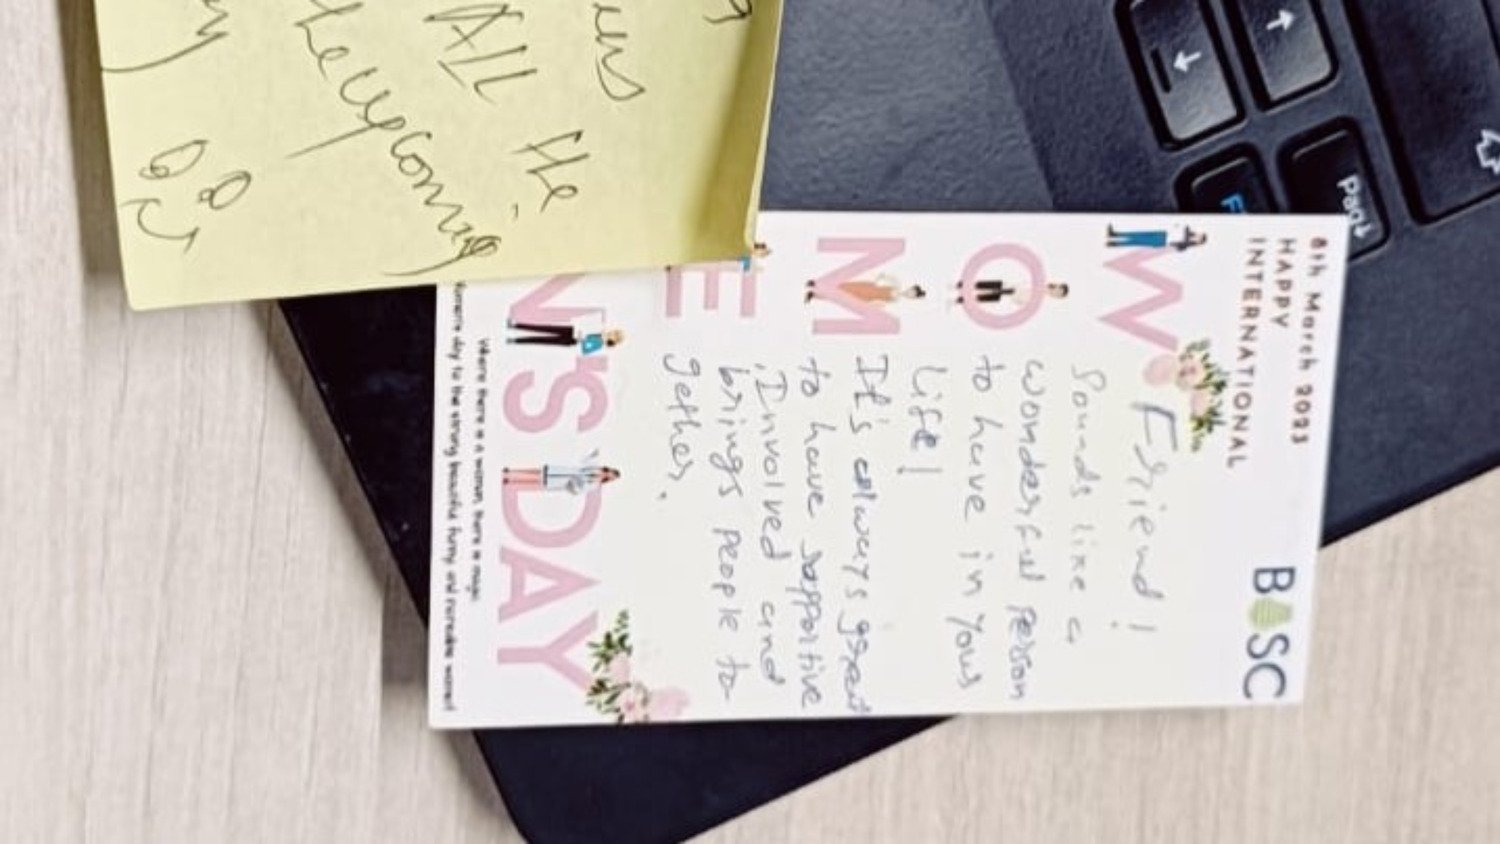 8th March 2023
HAPPY
INTERNATIONAL
BOSC
WOMEN'S DAY
Friend!
Sounds like a
wonderful person
to have in your
life!
It's always great
to have suppotive
, Involved and
brings people to-
gether.
Where there is a woman there is magic.
day to the strong beautiful funny and incredible women!
All the
upcoming
PgDn